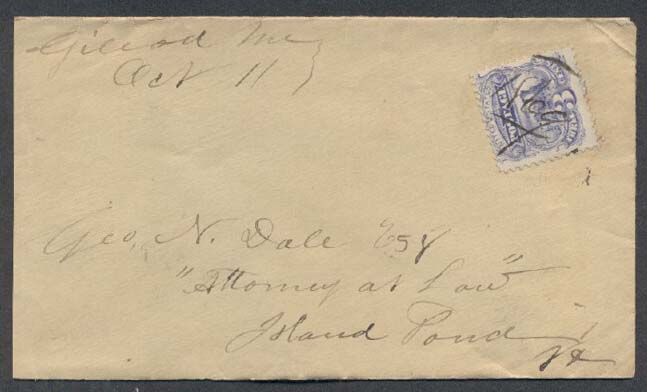 Gilead Me
Oct 11
Geo. N. Dale Esq
"Attorney at Law"
Island Pond
Vt
3